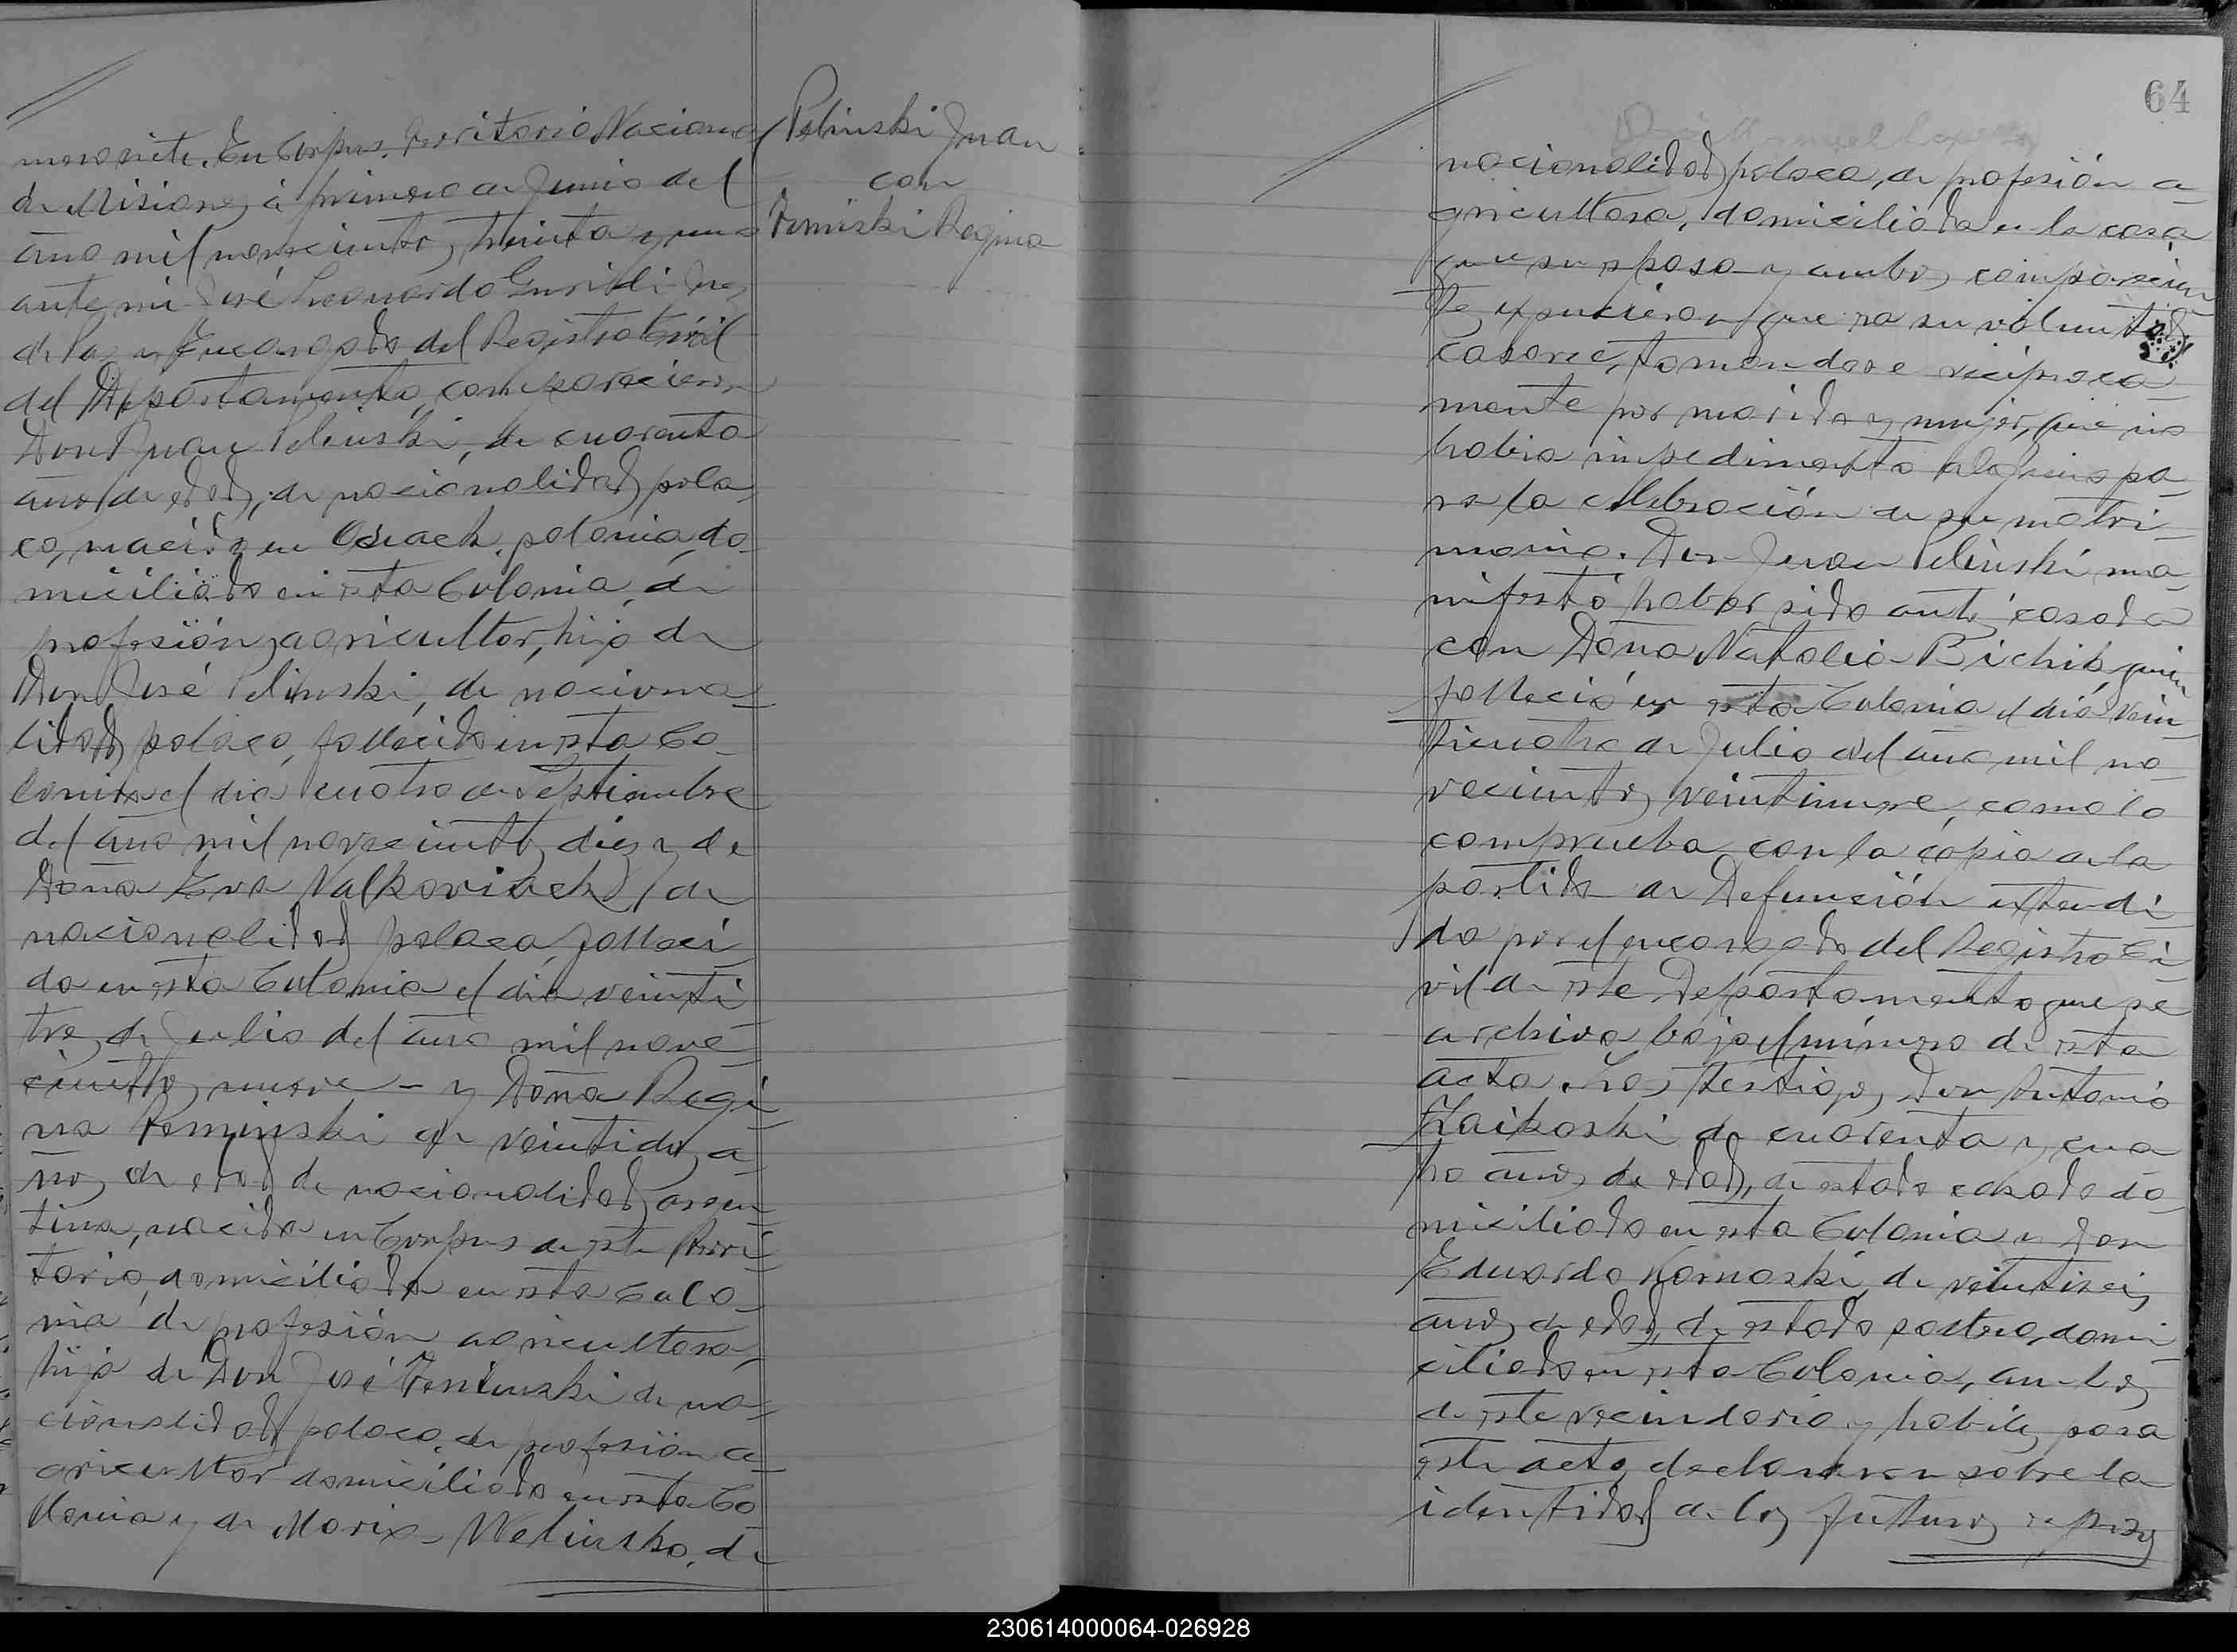 mero siete. En Corpus, Territorio Nacional
de Misiones, á primero de Junio del
año mil novecientos treinta y uno
ante mi José Leonardo Guridi Juez
de Paz y Encargado del Registro Civil
del Departamento, comparecieron
Don Juan Pelinski, de cuarenta
años de edad, de nacionalidad pola
co, nacido en polonia, do-
miciliado en esta Colonia, de
profesión agricultor, hijo de
Don José Pelinski, de naciona-
lidad polaco, fallecido en esta Co-
lonia el dia cuatro de Septiembre
del año mil novecientos diez y de
Doña Eva Valkoviack, de
nacionalidad polaca, falleci
da en esta Colonia el dia veinti
tres de Julio del año mil nove-
cientos nueve - y Doña Regi-
na Feminski de veintidos a-
ños de edad de nacionalidad argen-
tina, nacida en Corpus de este Terri-
torio, domiciliada en esta Colo-
nia de profesión agricultora,
hija de Don José Feminski de na-
cionalidad polaco, de profesión a-
gricultor domiciliado en esta Co
lonia y de Maria Welinsko, de
Pelinski Juan
con
Feminski Regina
64
nacionalidad polaca, de profesión a-
gricultora, domiciliada en la casa
que su esposo y ambos comparecien
tes, expusieron que era su voluntad
casarse, tomandose reciproca-
mente por marido y mujer, que no
habia impedimento alguno pa-
ra la celebración de su matri-
monio. Don Juan Pelinski ma-
nifestó haber sido antes casado
con Doña Natalia Bichik, quien
falleció en esta Colonia el dia vein-
ticuatro de Julio del año mil no-
vecientos veintinueve, como lo
comprueba con la copia de la
partida de Defunción extendi-
da por el encargado del Registro Ci
vil de este Departamento que se
archiva bajo el número de esta
acta. Los testigos, Don Antonio
Zaikoski de cuarenta y cua
tro años de edad, de estado casado do-
miciliado en esta Colonia y Don
Eduardo Komoski, de veintiseis
años de edad, de estado soltero, domi
ciliado en esta Colonia, ambos
de este vecindario y habiles para
este acto, declararon sobre la
identidad de los futuros esposos
230614000064-026928